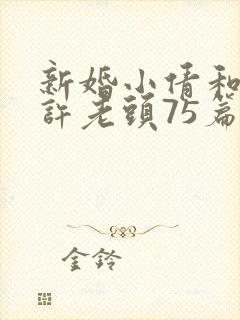 新婚小倩和
許老頭75篇
金铃